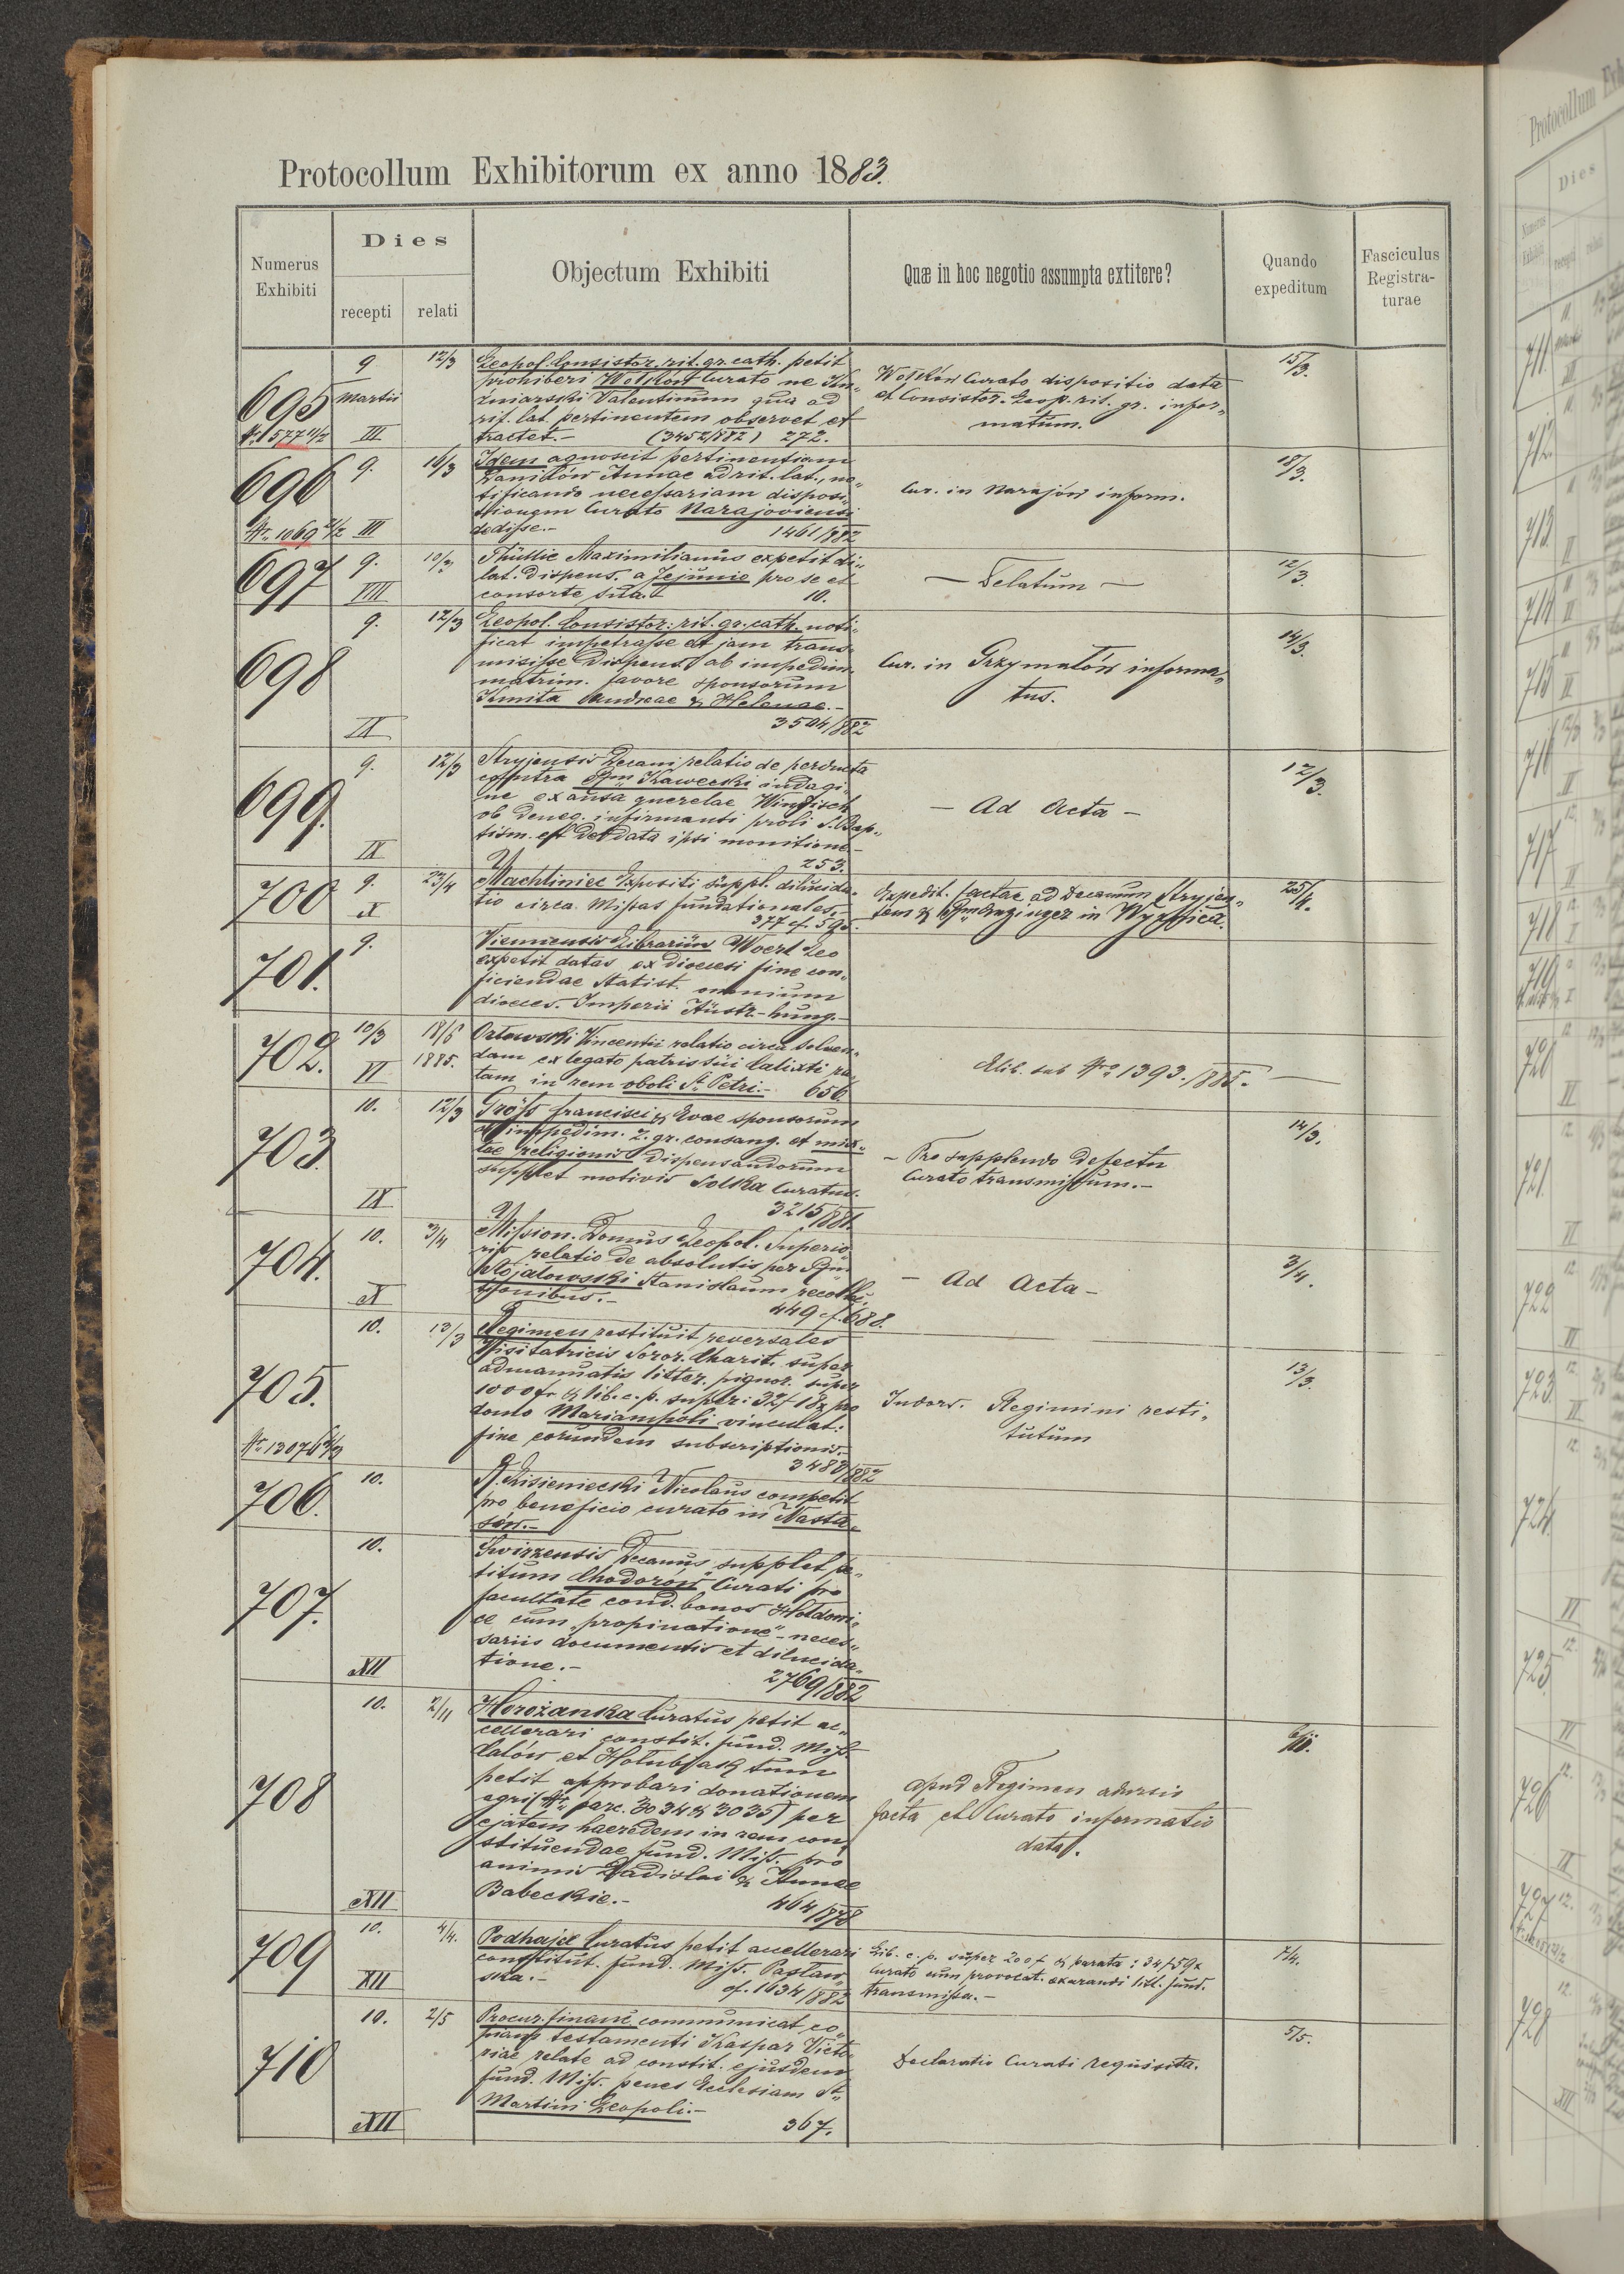 Protocollum Exhibitorum ex anno 1883.
Numerus Exhibiti
Dies
recepti
relati
Objectum Exhibiti
Quæ in hoc negotio assumpta extitere?
Quando expeditum
Fasciculus Registraturae
695
Nr. 1577
9 Martii
III
12/3
Leopol. Consistor. rit. gr. cath. petit
prohiberi Wołków Curato ne
Valentinum qua ad
rit. lat. pertinentem observet et
tractet.- (3452/882) 272.
Wołków Curato dispositio data
et Consistor. Leop. rit. gr. infor„
matum.
15/3.
696
Nr. 1069
9.
III
16/3
Idem agnoscit pertinentiam
Daniłów Annae ad rit. lat., no„
tificando necessariam disposi„
tionem Curato Narajoviensi
dedisse.- 1461/882
Cur. in Narajów inform.
18/3.
697
9.
VIII
10/3
Thüllie Maximilianus expetit di„
lat. dispens. a Jejunio pro se et
consorte sua.- 10.
— Delatum —
12/3.
698
9.
IX
12/3
Leopol. Consistor. rit. gr. cath. noti„
ficat impetrasse et jam trans„
misisse dispens. ab impedim.
matrim. favore sponsorum
Kmita Andreae & Helenae.-
3504/882
Cur. in Grzymałów informa„
tus.
14/3.
699.
9.
IX
12/3
Stryjensis Decani relatio de perducta
contra Kawecki indagi„
ne ex ansa querelae Windisch
ob deneg. infirmanti proli S. Bap„
tism. et de data ipsi monitione-
253.
- Ad Acta -
12/3.
700
9.
X
23/4
Machliniec Expositi suppl. dilucida„
tio circa Missas fundationales.-
377 cf. 595.
Expedit. factae ad Decanum Stryjen„
sem & in
25/4.
701.
9.
Viennensis Librarius Woerl Leo
expetit datas ex dioecesi fine con„
ficiendae Statist. omnium
dioeces. Imperii Austr.-hung.-
702.
10/3
VI
18/6
1885.
Orłowski Vincentii relatio circa solven„
dam ex legato patris sui Calixti ra„
tam in rem oboli St. Petri.- 656.
Elib. sub Nro 1393./885.-
703.
10.
IX
12/3
Gröss Francisci & Evae sponsorum
ab impedim. 2. gr. consang. et mix„
tae religionis dispensandorum
supplet motivis Solka Curatus.
3215/881.
- Pro supplendo defectu
Curato transmissum.-
14/3.
704.
10.
X
3/4
Mission. Domus Leopol. Superio„
ris relatio de absolutis per
Stojałowski Stanislaum recolle„
ctionibus.-
449 cf. 688.
- Ad Acta -
3/4.
705.
Nr. 1307
10.
13/3
Regimen restituit reversales
Visitatricis Soror. Charit. super
admanuatis litter. pignor. super
1000 fr & lib. c. p. super 32f 18x pro
domo Mariampoli vinculat.
fine eorundem subscriptionis.-
3488/882
Indors. Regimini resti„
tutum
13/3.
706.
10.
Lisieniecki Nicolaus competit
pro beneficio curato in Nasta„
sów.-
707.
10.
XII
Świrzensis Decanus supplet pe„
titum Chodorów Curati pro
facultate cond. bonos Hołdowi„
ce cum „propinatione" neces„
sariis documentis et dilucida„
tione.-
2769/882
708
10.
XII
2/11
Horożanka Curatus petit ac„
cellerari constit. fund. Miss.
et tum
petit approbari donationem
agri (Nr. parc. 3034 & 3035) per
ejatem haeredem in rem con„
stituendae fund. Miss. pro
animis Ladislai & Annae
Babeckie.-
464/878
Apud Regimen
facta et Curato informatio
data.
6/11.
709
10.
XII
4/4.
Podhajce Curatus petit accellerari
constitut. fund. Miss.
ska.- cf. 1634/882
Lib. c. p. super 200f & parata: 34f 59x
Curato cum provocat. exarandi litt. fund.
transmissa.-
7/4.
710
10.
XII
2/5
Procur. financ. communicat co„
piam testamenti Kaspar Victo„
riae relate ad constit. ejusdem
fund. Miss. penes Ecclesiam St.
Martini Leopoli.-
367.
Declaratio Curati requisita.
5/5.
Protocollum
Dies
711
712.
713
714
715
716
717
718
719
720
721.
722
723
724
725.
726
727
728